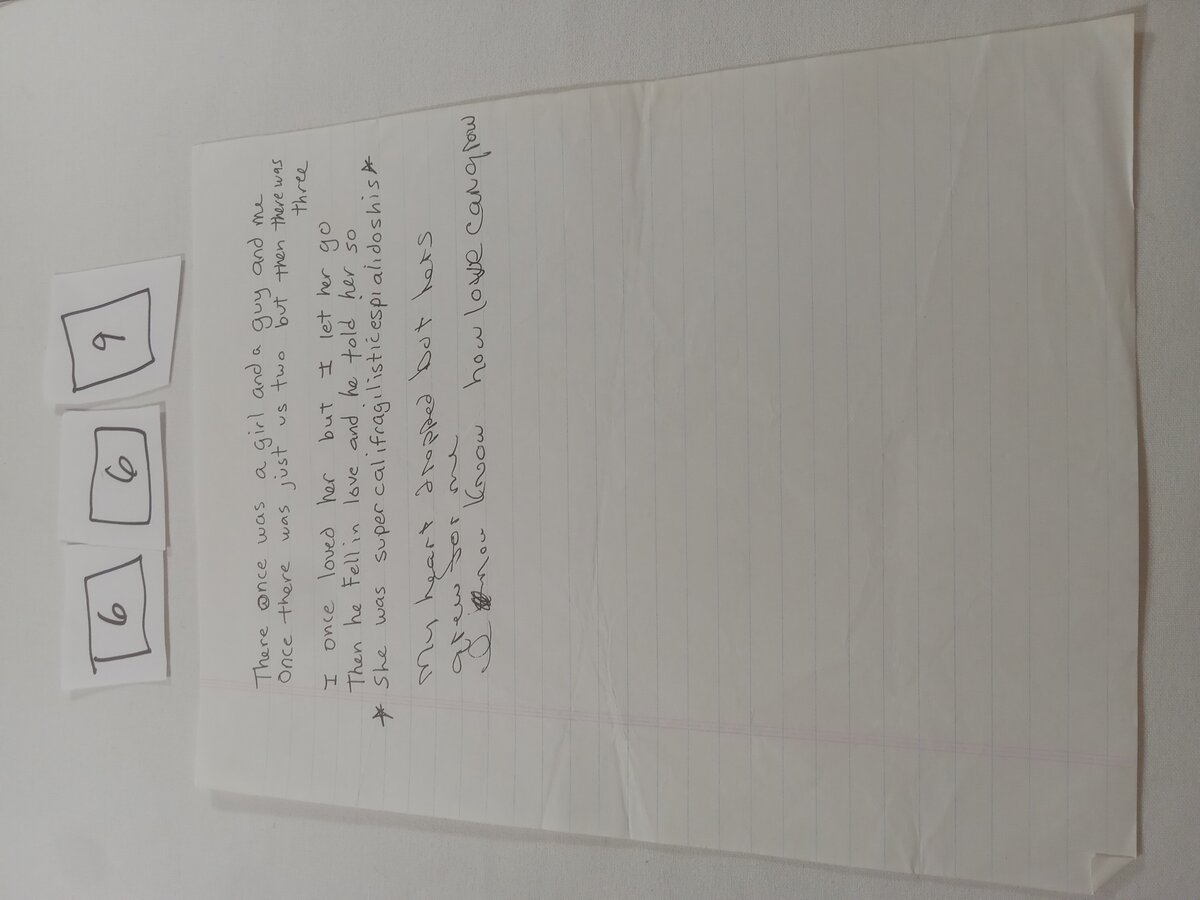 6 6 9
There once was a girl and a guy and me
Once there was just us two but then there was
three
I once loved her but I let her go
Then he fell in love and he told her so
* She was supercalifragilisticespialidoshis *
My heart dropped but hers
grew for me
I now know how love can grow